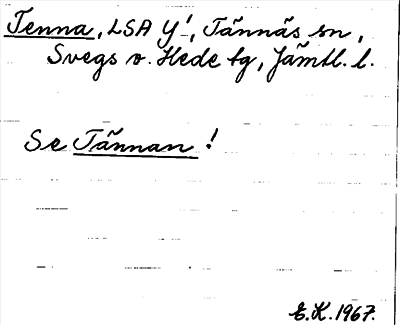 Tenna, LSA Y!, Tännäs sn,
Svegs o. Hede tg, Jämtl. l.
Se Tännan!
E.K. 1967.